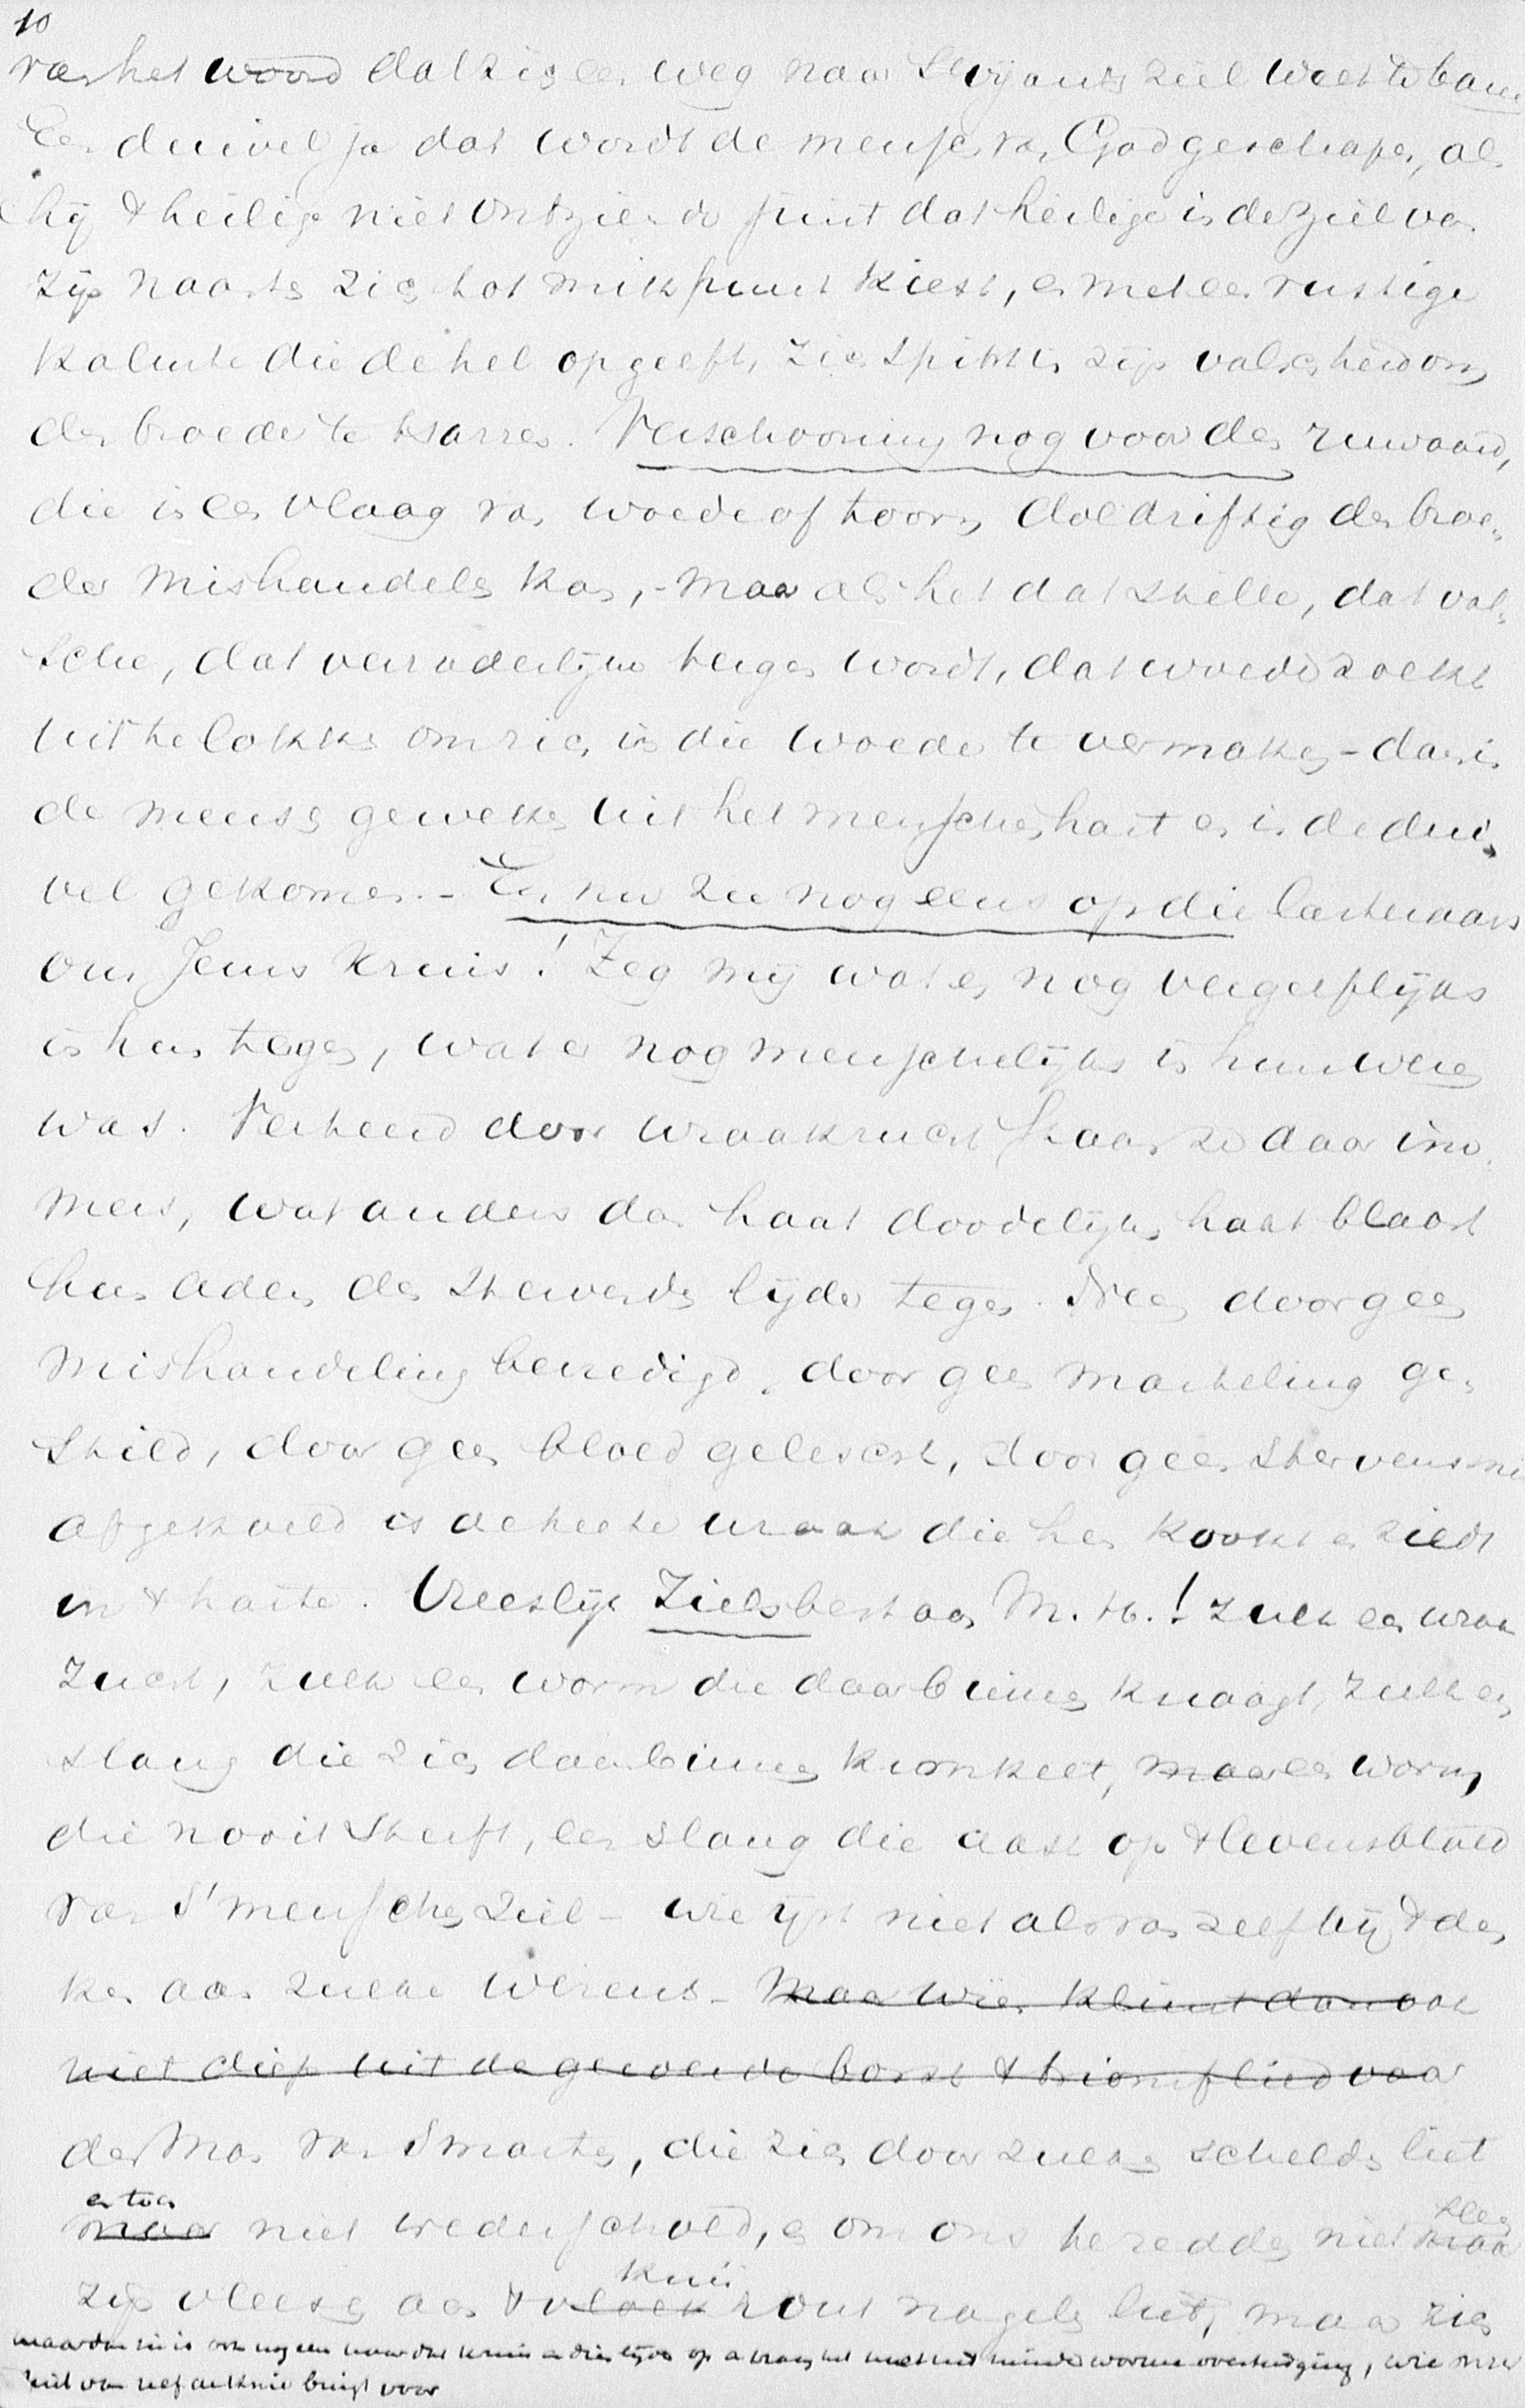 10
van het woord dat zich een weg naar s'vijands ziel weet te banen
Een duivel ja dat wordt de mensch van God geschapen, als
hij 't heilige niet ontziende juist dat heilige in de ziel van
zijn naaste zich tot mikpunt kiest, en met een rustige
kalmte die de hel opgeeft, zich spitst in zijn valschheid om
den broeder te sarren. Verschooning nog voor den ruwaard,
die in een vlaag van woede of toorn doldriftig den broe-
der mishandelen kan, - maar als het dat stille, dat val-
sche, dat verraderlijke tergen wordt, dat woede zoekt
uit te lokken om zich in die woede te vermaken - dan is
de mensch geweken uit het menschenhart en is de dui-
vel gekomen. - En nu zie nog eens op die lasteraars
om Jezus kruis! Zeg mij wat er nog vergeeflijks
in hun tergen, wat er nog menschelijks in hun wezen
was. Verteerd door wraakzucht staan ze daar im-
mers, wat anders dan haat doodelijke haat blaast
hun adem den stervende lijder tegen. Neen, door geen
mishandeling bevredigd, door geen marteling ge-
stild, door geen bloed gelescht, door geen stervenssnik
afgekoeld is de heete wraak die hen kookt en ziedt
in 't harte. Vreeslijk Zielsbestaan M. H.! zulk een wraak
zucht, zulk een worm die daarbinnen knaagt, zulk een
slang die zich daarbinnen kronkelt, maar een worm
die nooit sterft, een slang die aast op 't levensbloed
van s'menschen ziel - wie ijst niet als van zelf bij 't den
ken aan zulke wezens - Maar wien klimt dan ook
niet diep uit de geroerde borst 't triomflied voor
den Man van Smarten, die zich door zulken schelden liet
en toch
maar niet wederschold, en om ons te redden niet maar
alleen
kruis
zijn vleesch aan 't vloekhout nagelen liet, maar zich
maar dan is ook nog een naar dat kruis en dien lijder op
ziel van zelf aan knie buigt voor